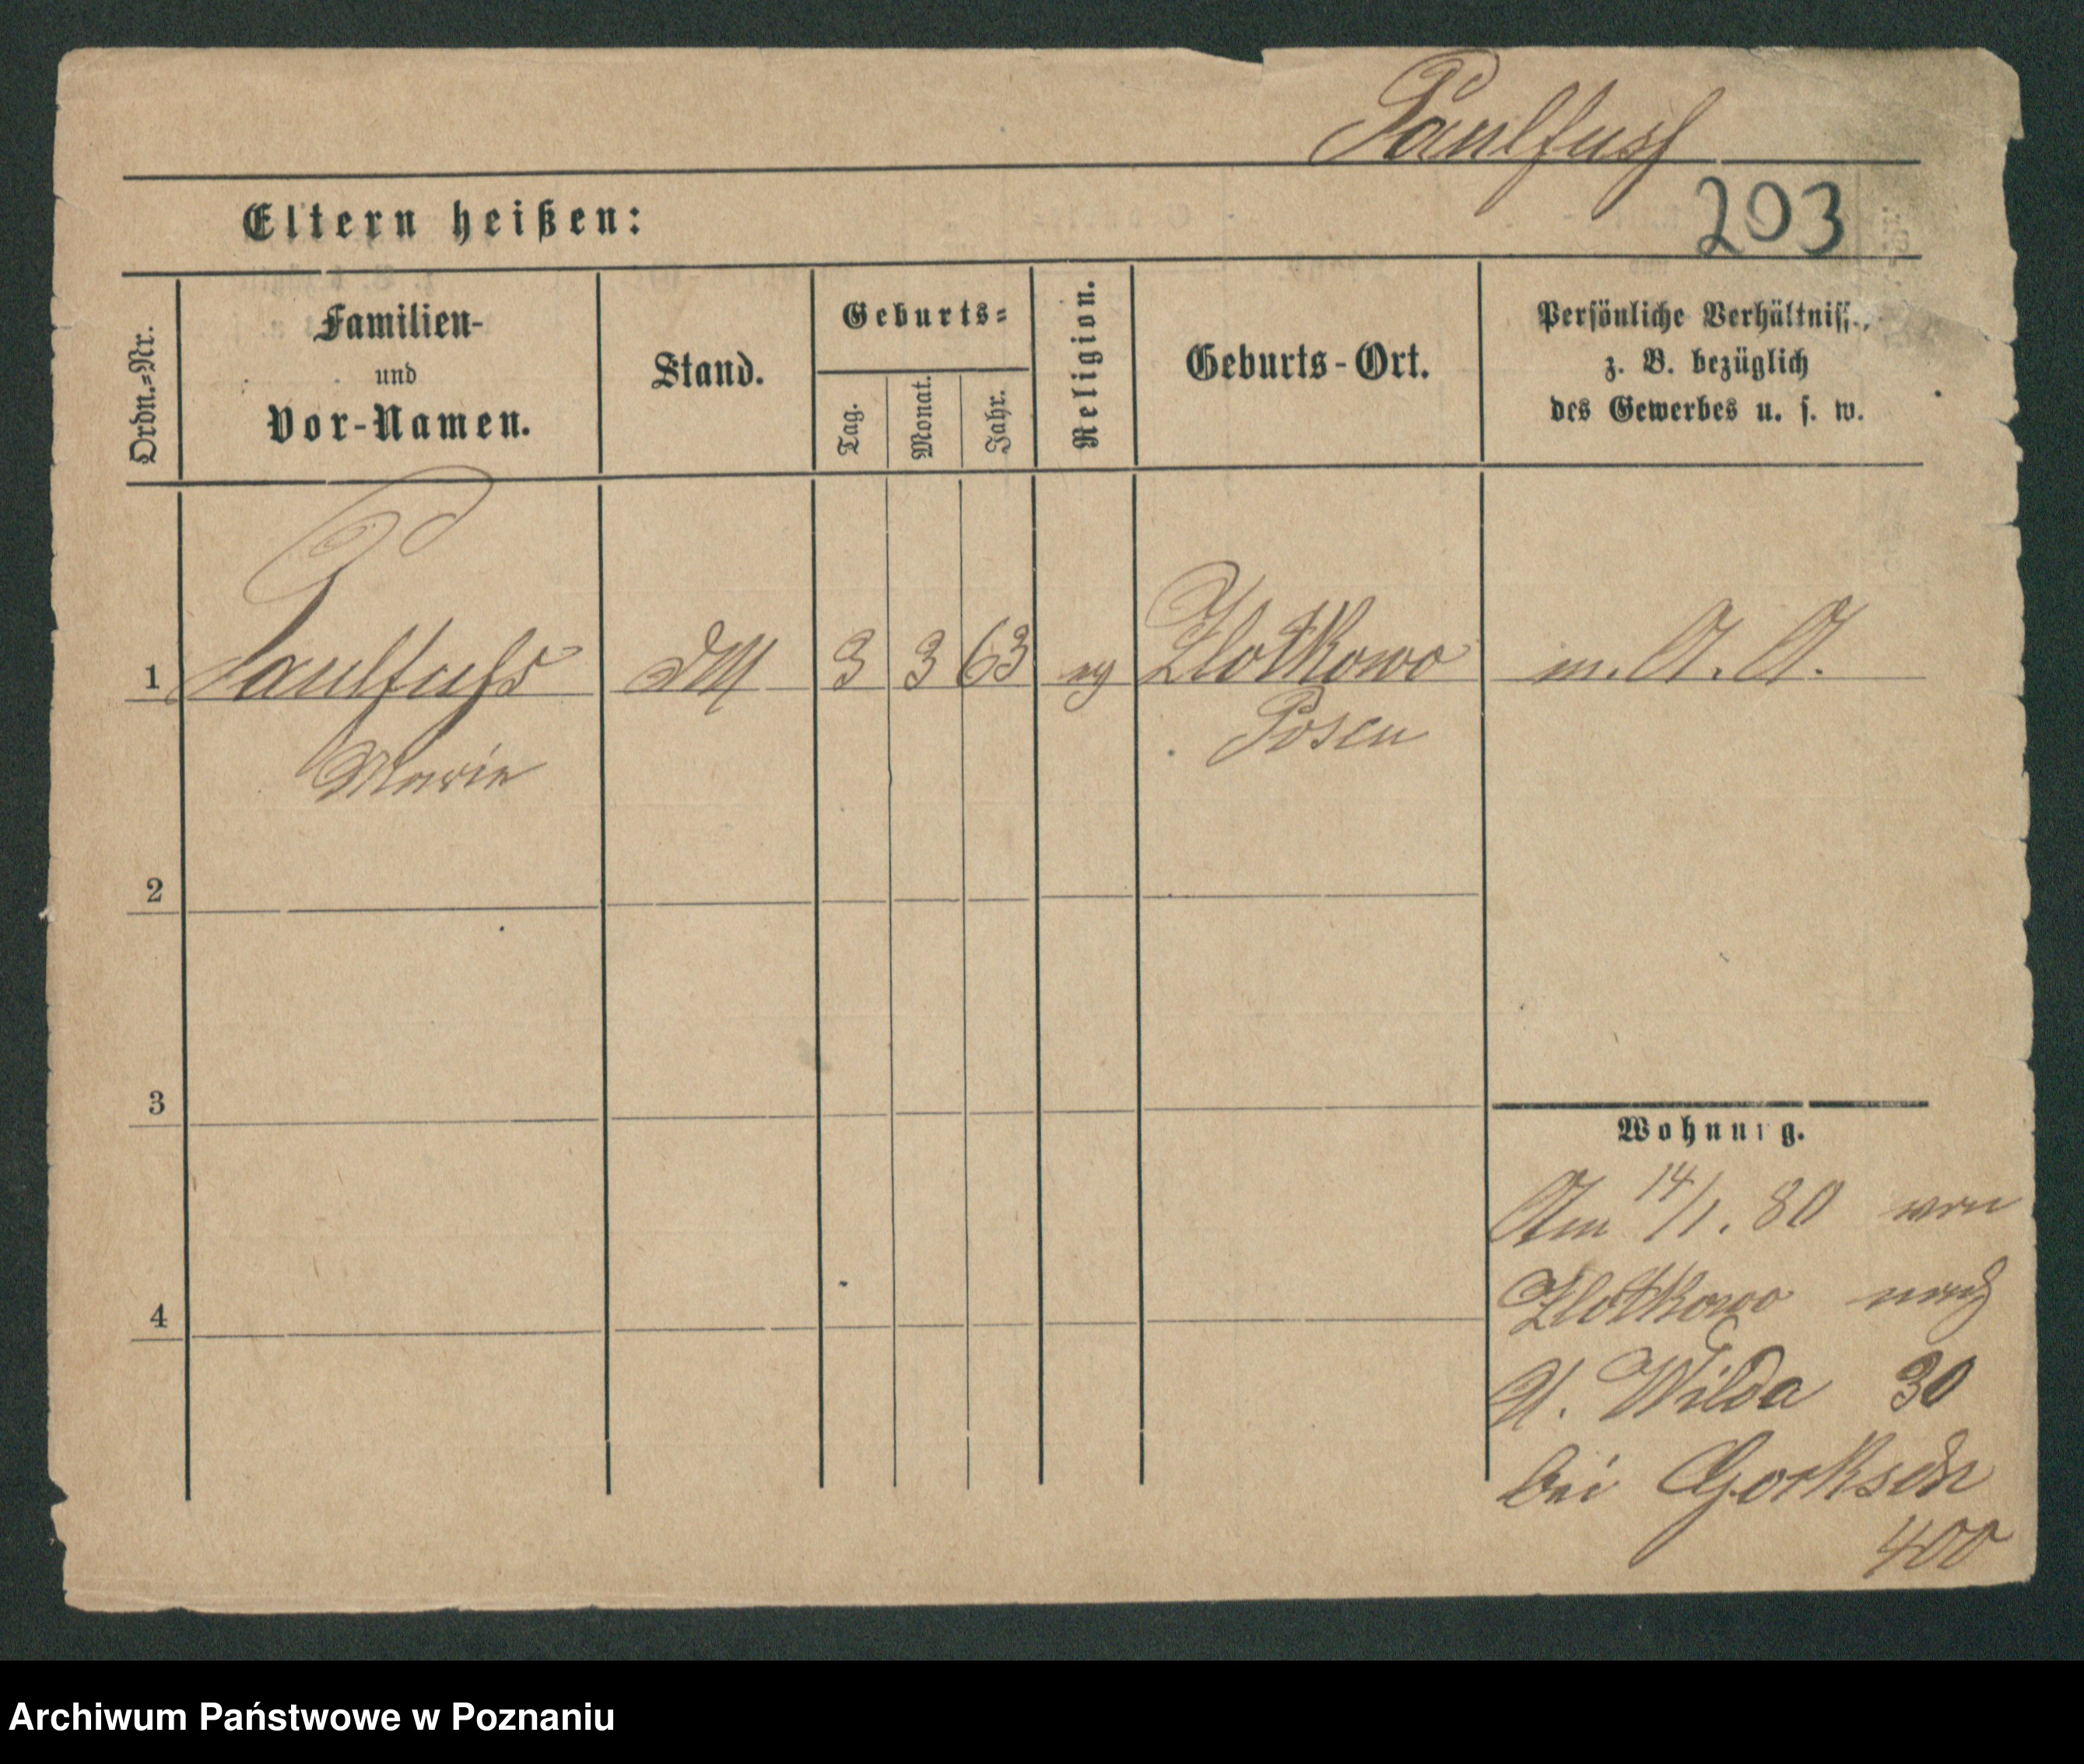 Paulfuss
203
Eltern heißen:
Ordn.=Nr.
Familien-
und
Vor-Namen.
Stand.
Geburts=
Tag.
Monat.
Jahr.
Religion.
Geburts-Ort.
Persönliche Verhältniss.,
z. B. bezüglich
des Gewerbes u. s. w.
1 Paulfuss 3 3 63 ev Zlotkowo m. A. A.
Marie Posen
2
3
4
Wohnung.
Am 14/1. 80 von
Zlotkowo nach
U. Wilda 30
bei
400
Archiwum Państwowe w Poznaniu